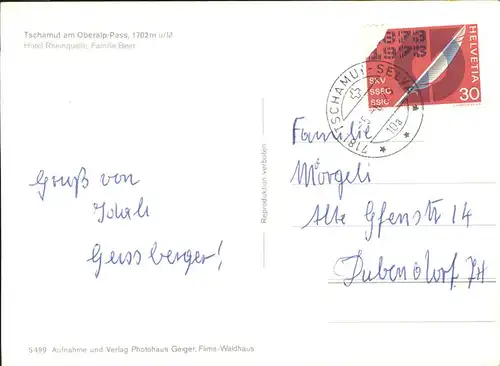 Tschamut am Oberalp-Pass, 1702 m ü/M
Hotel Rheinquelle, Familie Beer
1873
1973
HELVETIA
SKV
SSEC
SSIC
30
7181 TSCHAMUT-SELVA
Gruß von
Idali
Geissberger!
Reproduktion verboten
Familie
Mörgeli
Alte Gfennstr 14
Dübendorf ZH
5499 Aufnahme und Verlag Photohaus Geiger, Flims-Waldhaus